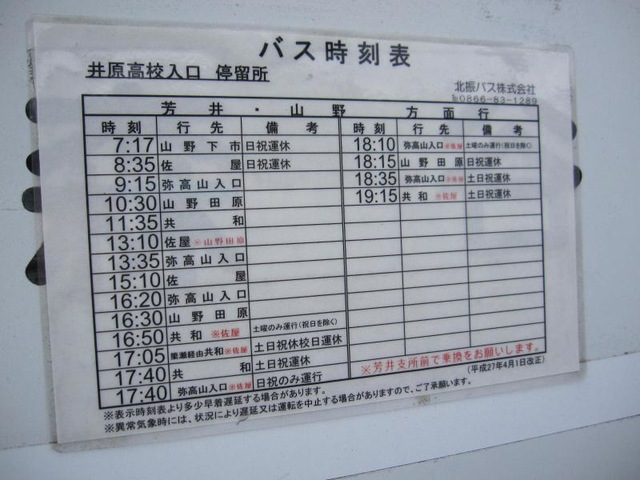 バス時刻表
井原高校入口 停留所
北振バス株式会社
℡0866-83-1289
芳井・山野 方面行
時刻 行先 備考 時刻 行先 備考
7:17 山野下市 日祝運休 18:10 弥高山入口※佐屋 土曜のみ運行(祝日を除く)
8:35 佐屋 日祝運休 18:15 山野田原 日祝運休
9:15 弥高山入口 18:35 弥高山入口※佐屋 土日祝運休
10:30 山野田原 19:15 共和 ※佐屋 土日祝運休
11:35 共和
13:10 佐屋※山野田原
13:35 弥高山入口
15:10 佐屋
16:20 弥高山入口
16:30 山野田原
16:50 共和 ※佐屋 土曜のみ運行(祝日を除く)
17:05 簗瀬経由共和※佐屋 土日祝休校日運休
17:40 共和 土日祝運休
17:40 弥高山入口※佐屋 日祝のみ運行
※芳井支所前で乗換をお願いします。
(平成27年4月1日改正)
※表示時刻表より多少早着遅延する場合があります。
※異常気象時には、状況により遅延又は運転を中止する場合がありますので、ご了承願います。